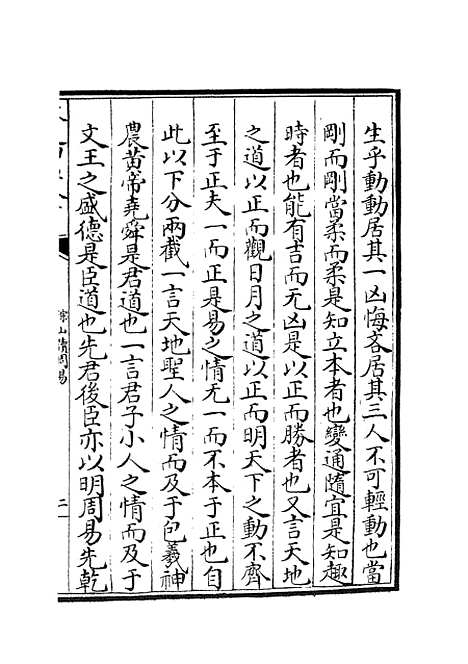 生乎動動居其一凶悔吝居其三人不可輕動也當
剛而剛當柔而柔是知立本者也變通隨宜是知趣
時者也能有吉而无凶是以正而勝者也又言天地
之道以正而觀日月之道以正而明天下之動不齊
至于正夫一而正是易之情无一而不本于正也自
此以下分兩截一言天地聖人之情而及于包羲神
農黄帝堯舜是君道也一言君子小人之情而及于
文王之盛德是臣道也先君後臣亦以明周易先乾
山讀周易